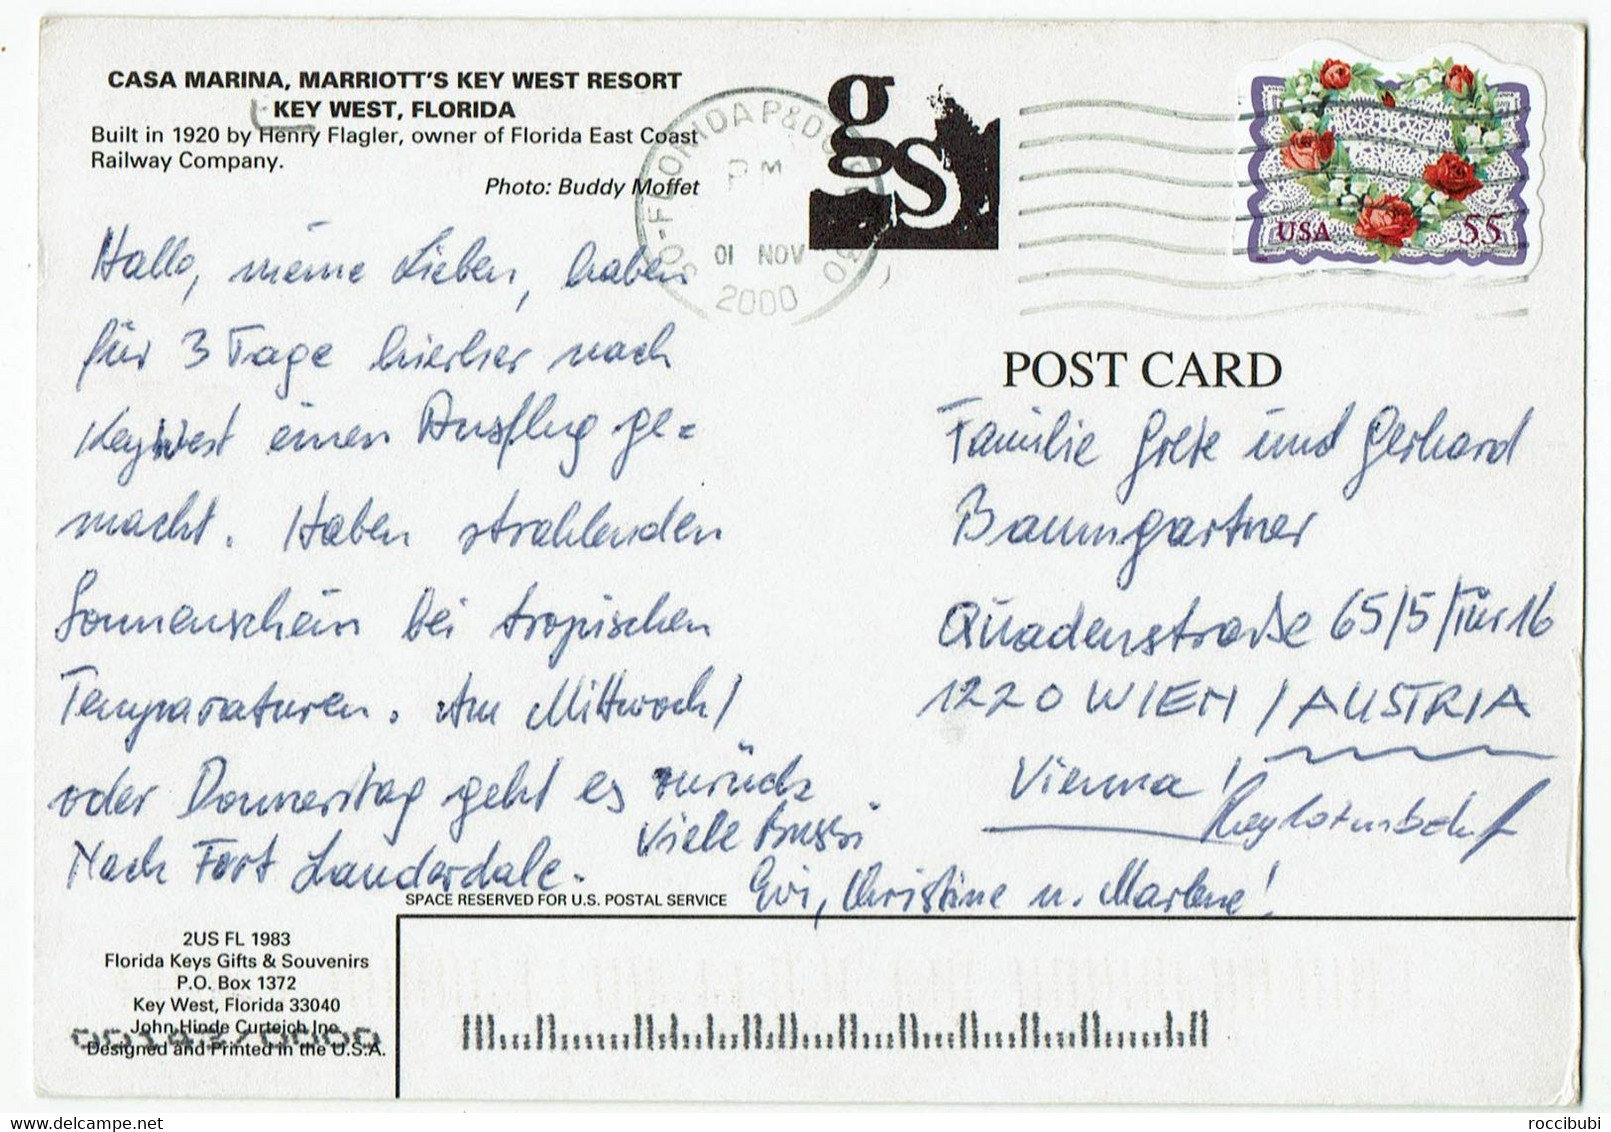 CASA MARINA, MARRIOTT'S KEY WEST RESORT
KEY WEST, FLORIDA
Built in 1920 by Henry Flagler, owner of Florida East Coast
Railway Company.
Photo: Buddy Moffet
SO-FLORIDA P&DC
PM
01 NOV
2000
gs
USA 55
POST CARD
Hallo, meine Lieben, haben
für 3 Tage hierher nach
Keywest einen Ausflug ge=
macht. Haben strahlenden
Sonnenschein bei tropischen
Temparaturen. Am Mittwoch/
oder Donnerstag geht es zurück
Nach Fort Lauderdale.
Viele Bussi
Evi, Christine u. Marlene!
Familie Grete und Gerhard
Baumgartner
Quadenstraße 65/5/Tür 16
1220 WIEN / AUSTRIA
Vienna!
SPACE RESERVED FOR U.S. POSTAL SERVICE
2US FL 1983
Florida Keys Gifts & Souvenirs
P.O. Box 1372
Key West, Florida 33040
John Hinde Curteich Inc.
Designed and Printed in the U.S.A.
delcampe.net
roccibubi